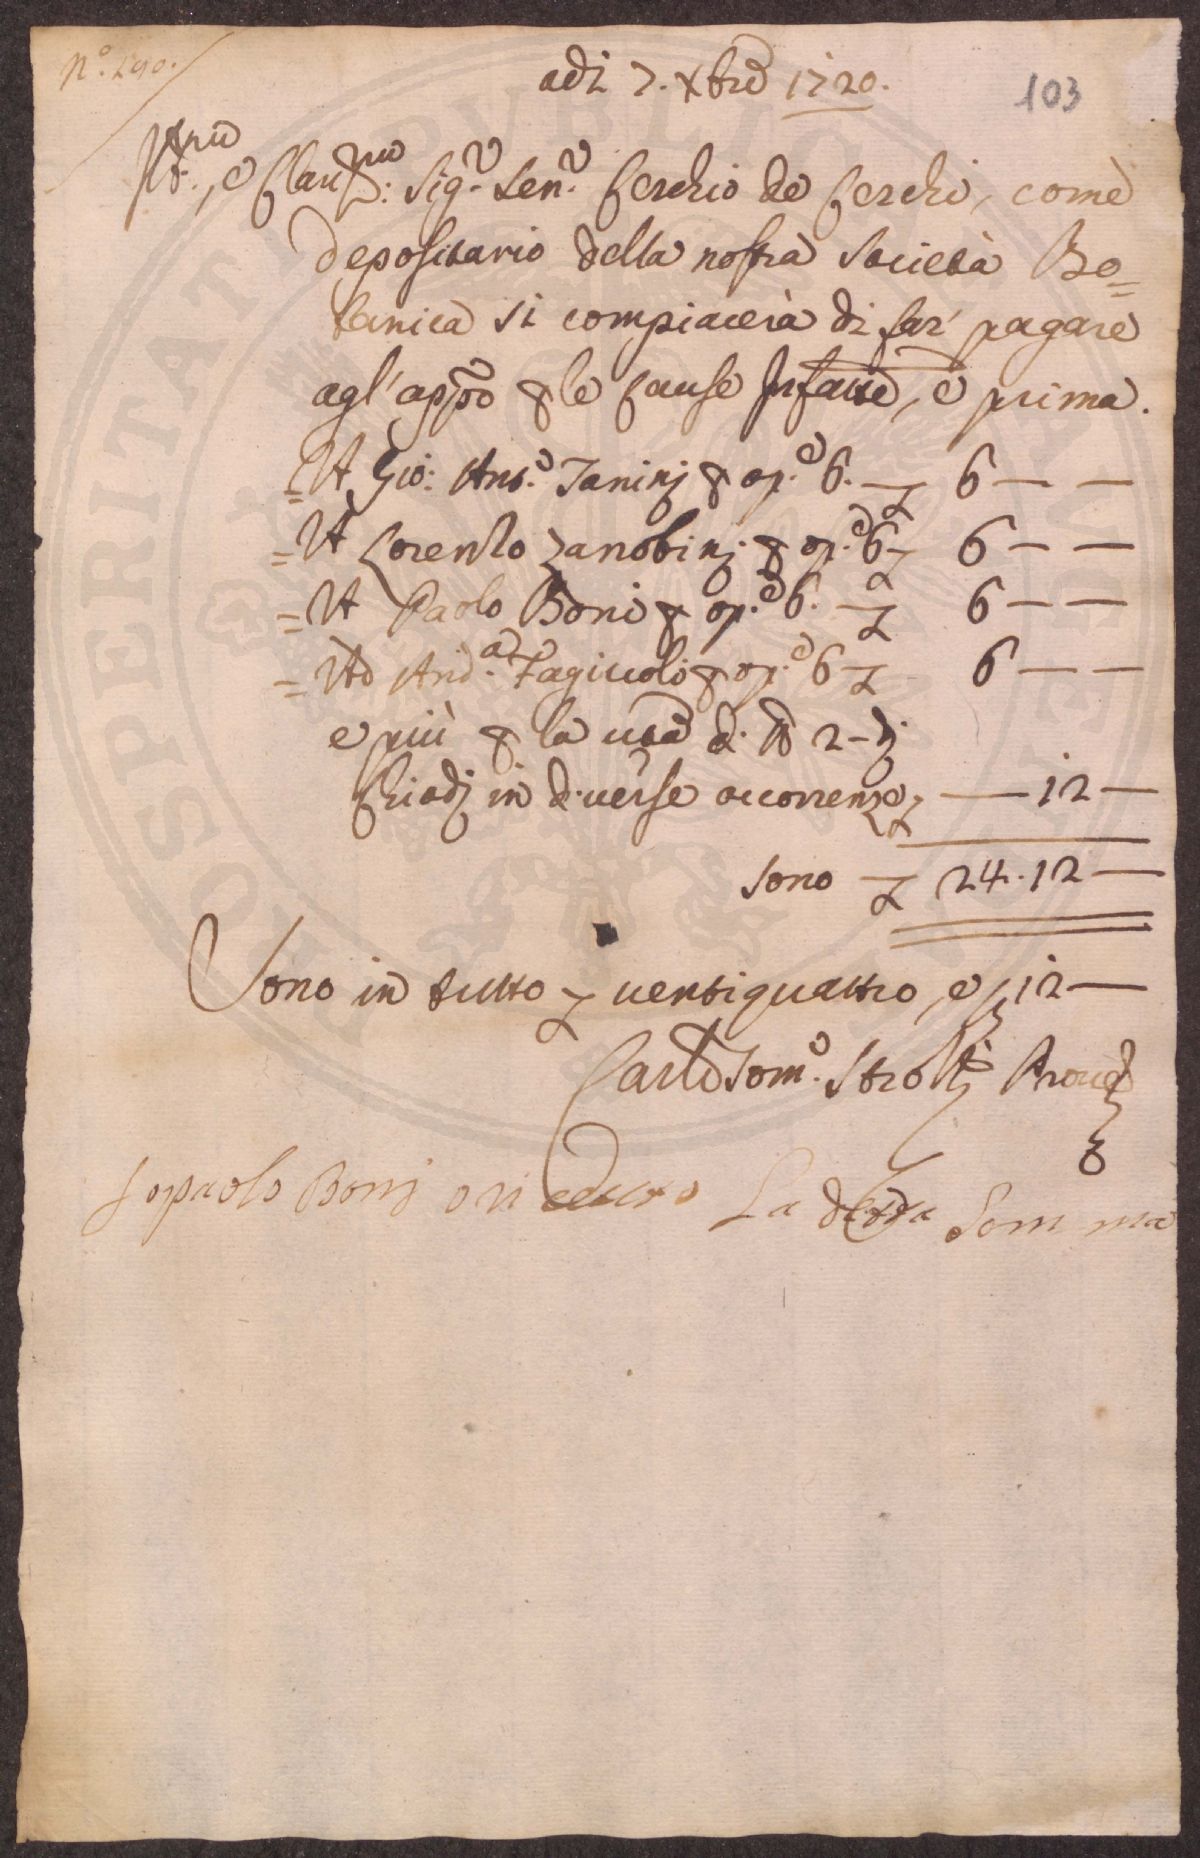 N.º 290.
adì 7. Xbre 1720.
103
Ill.mo, e Clariss.mo: Sig.r Sen.r Cerchio de Cerchi, come
depositario della nostra Società Bo=
tanica si compiacerà di far' pagare
agl'app.o le cause infratte, e prima.
= A Gio: Ant.o Janinj op.e 6. 6 — —
= A Lorenzo Zanobinj op.e 6 6 — —
= A Paolo Boni op.e 6. 6 — —
= Ad And.a Fagiuoli op.e 6 6 — —
e più la d. 2 —
Chiodj in diverse occorrenze — 12 —
sono 24. 12 —
Sono in tutto ventiquattro, e 12 —
Carlo Tom.o Strozzj Proved.
Io paolo Bonj o riceuto La detta Somma
HOSPERITATI PVBLICAE